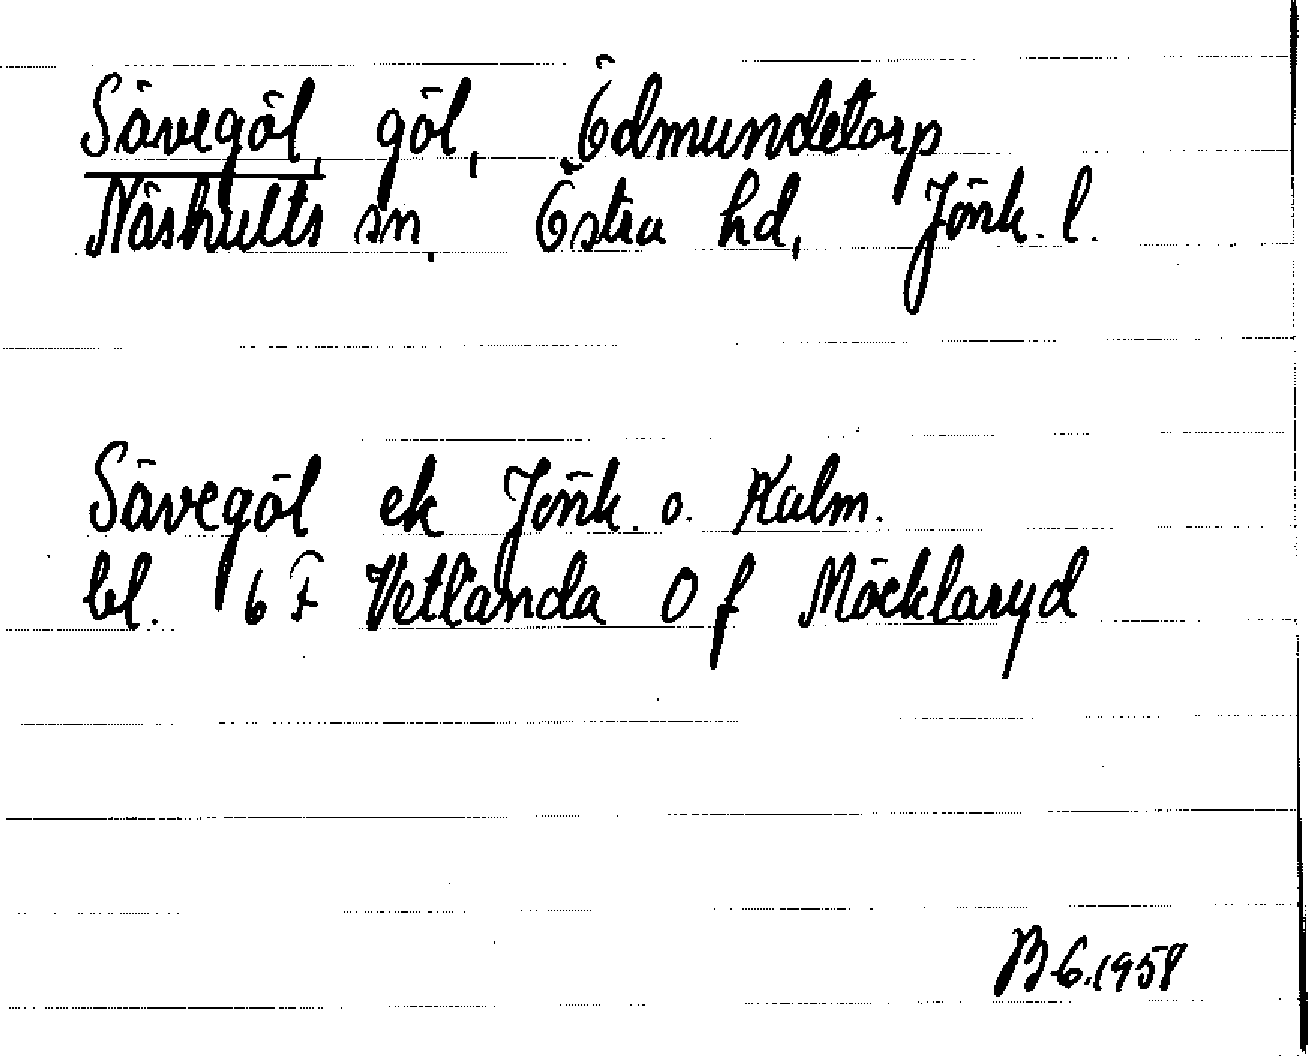 Sävegöl, göl, Ödmundetorp
Näshults sn, Östra hd, Jönk. l.
Sävegöl ek Jönk. o. Kalm.
bl. 6 F Vetlanda 0 f Möcklaryd
B G. 1958